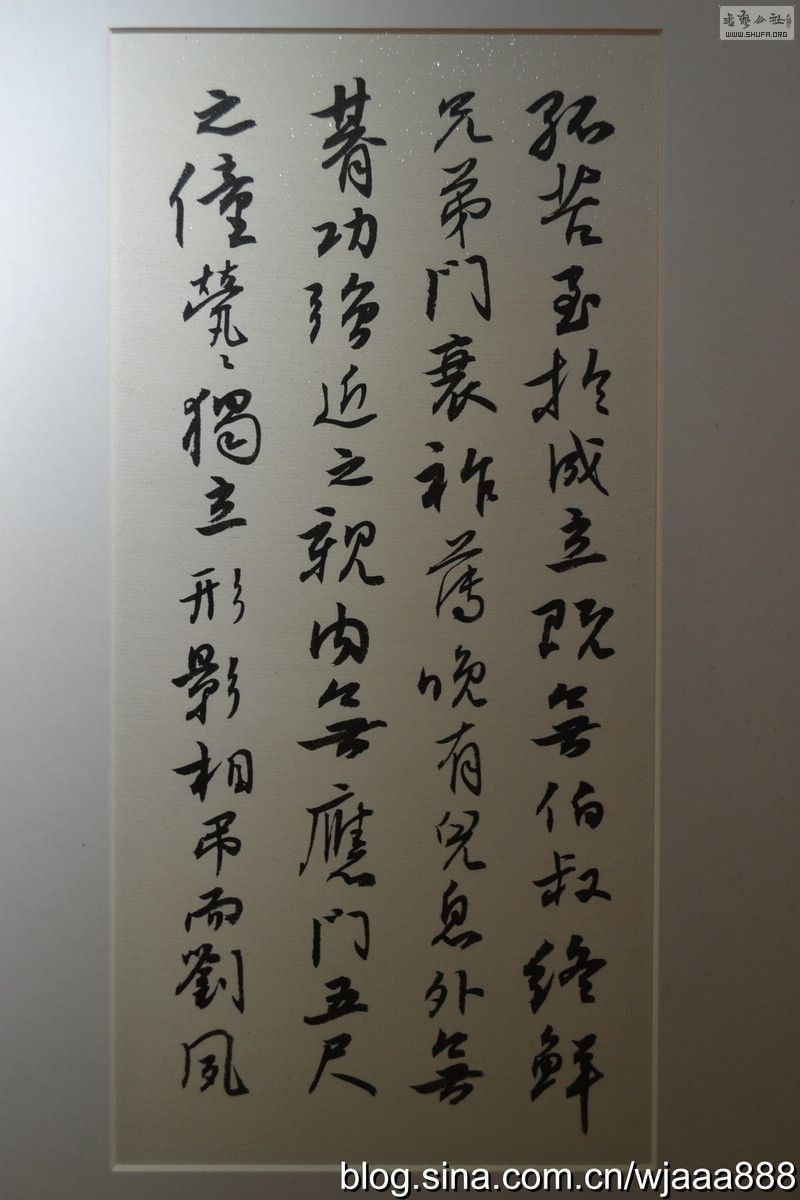 孤苦至於成立既無伯叔終鮮
兄弟門衰祚薄晚有兒息外無
朞功強近之親內無應門五尺
之僮煢〻獨立形影相吊而劉夙
书艺公社
WWW.SHUFA.ORG
blog.sina.com.cn/wjaaa888